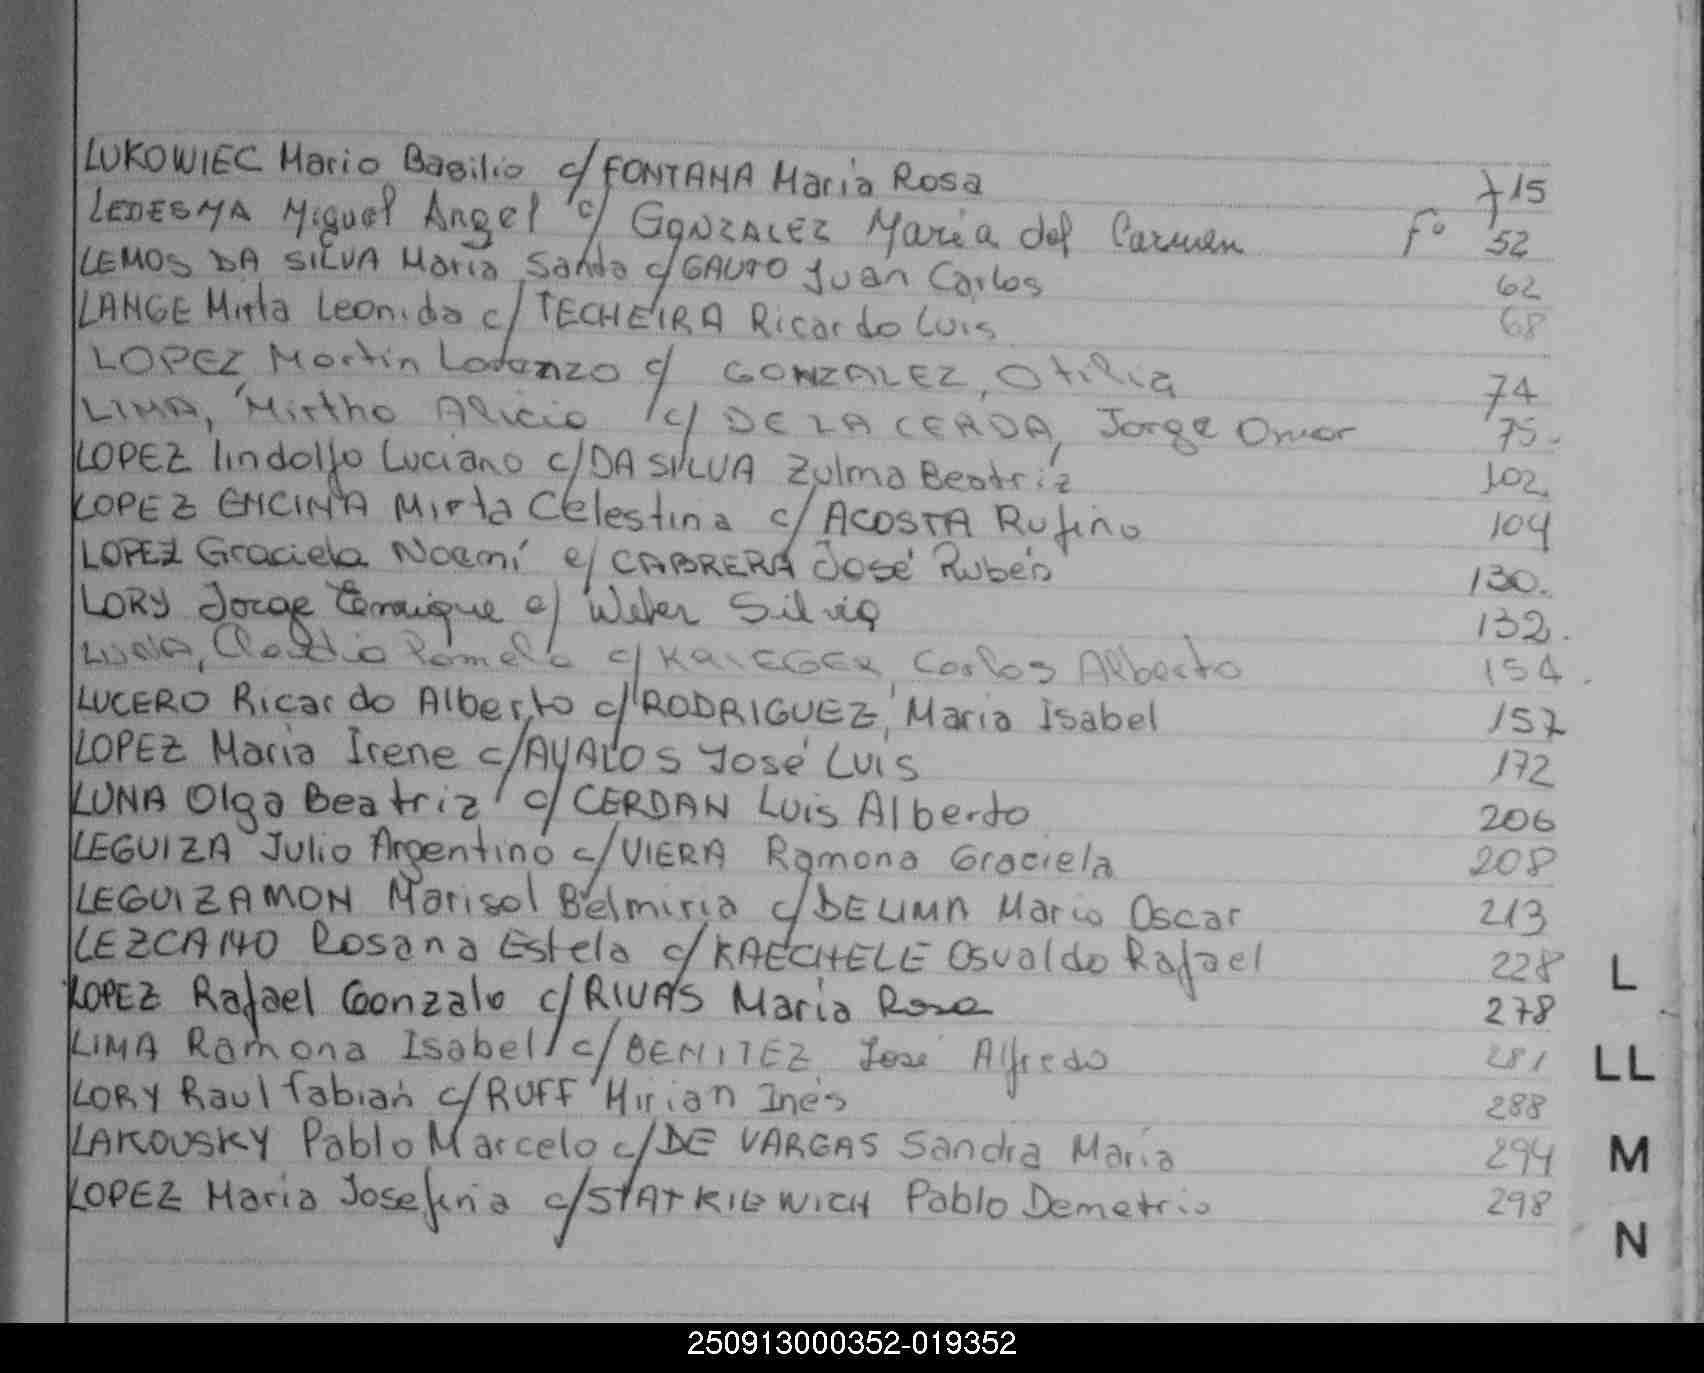 LUKOWIEC Mario Basilio c/ FONTANA María Rosa f 15
LEDESMA Miguel Angel c/ GONZALEZ María del Carmen Fº 52
LEMOS DA SILVA María Santa c/ GAUTO Juan Carlos 62
LANGE Mirta Leonida c/ TECHEIRA Ricardo Luis 68
LOPEZ Martín Lorenzo c/ GONZALEZ, Otilia 74
LIMA, Mirtha Alicia c/ DE LA CERDA, Jorge Omar 75.
LOPEZ lindolfo Luciano c/ DA SILVA Zulma Beatriz 102
LOPEZ ENCINA Mirta Celestina c/ ACOSTA Rufino 104
LOPEZ Graciela Noemí c/ CABRERA José Rubén 130.
LORY Jorge Enrique c/ Weber Silvia 132.
LUNA, Claudia Pamela c/ KRIEGER, Carlos Alberto 154.
LUCERO Ricardo Alberto c/ RODRIGUEZ, María Isabel 157
LOPEZ María Irene c/ AYALOS José Luis 172
LUNA Olga Beatriz c/ CERDAN Luis Alberto 206
LEGUIZA Julio Argentino c/ VIERA Ramona Graciela 208
LEGUIZAMON Marisol Belmiria c/ DE LIMA Mario Oscar 213
LEZCANO Rosana Estela c/ KAECHELE Osvaldo Rafael 228
L
LOPEZ Rafael Gonzalo c/ RIVAS María Rosa 278
LIMA Ramona Isabel c/ BENITEZ José Alfredo 281
LL
LORY Raul fabián c/ RUFF Mirian Inés 288
LAKOVSKY Pablo Marcelo c/ DE VARGAS Sandra María 294
M
LOPEZ María Josefina c/ STATKIEWICH Pablo Demetrio 298
N
250913000352-019352